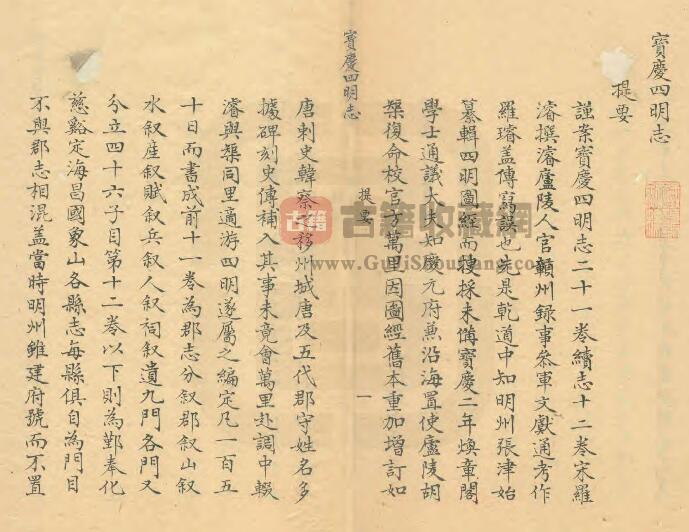 寶慶四明志
提要
謹案寶慶四明志二十一卷續志十二卷宋羅
濬撰濬廬陵人官贛州錄事參軍文獻通考作
羅璿盖傳寫誤也先是乾道中知明州張津始
纂輯四明圖經而搜採未備寶慶二年煥章閣
學士通議大夫知慶元府兼沿海置使廬陵胡
榘復命校官方萬里因圖經舊本重加增訂如
提要
一
寶慶四明志
唐刺史韓察移州城唐及五代郡守姓名多
據碑刻史傳補入其事未竟會萬里赴調中輟
濬與榘同里適游四明遂屬之編定凡一百五
十日而書成前十一卷為郡志分叙郡叙山叙
水叙産叙賦叙兵叙人叙祠叙遺九門各門又
分立四十六子目第十二卷以下則為鄞奉化
慈谿定海昌國象山各縣志每縣俱自為門目
不與郡志相混盖當時明州雖建府號而不置
古籍
古籍收藏网
www.GuJiShouCang.com